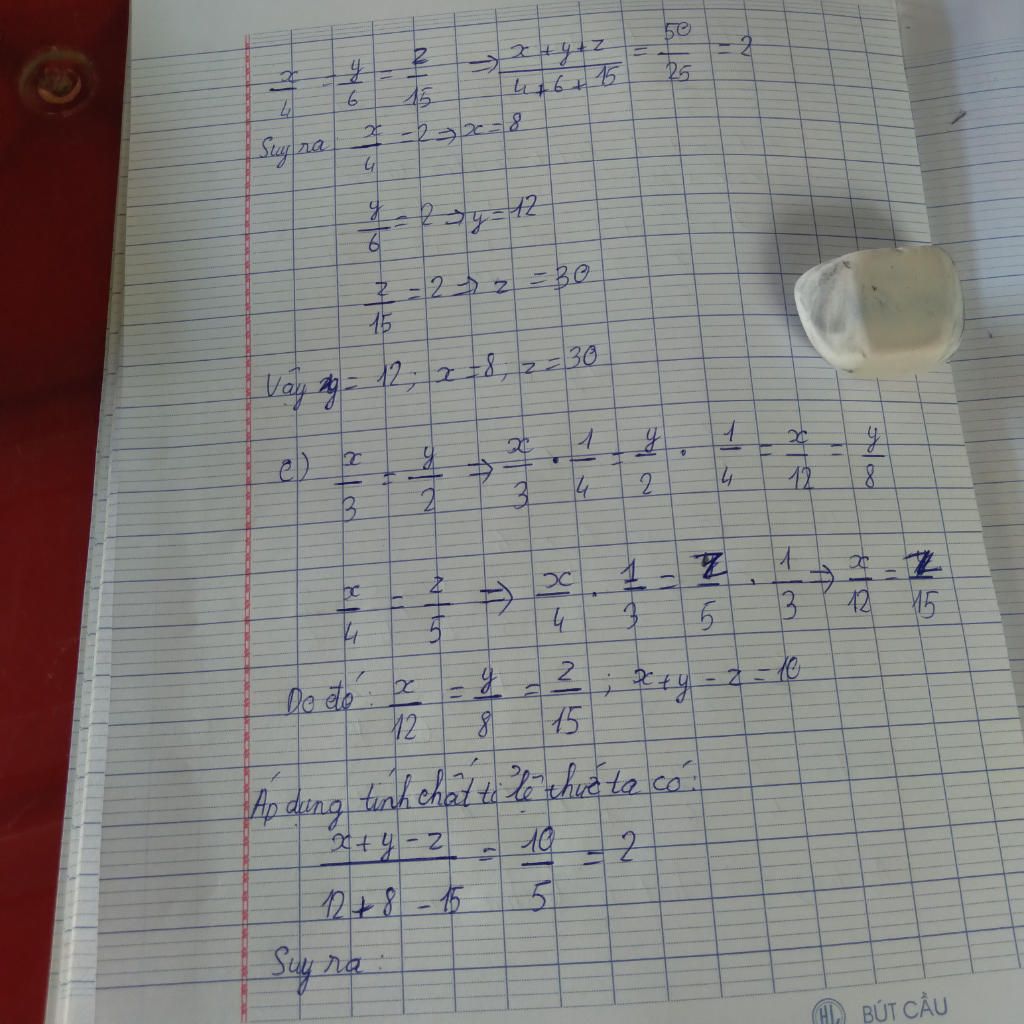 x/4 = y/6 = z/15 ⇒ x+y+z/4+6+15 = 50/25 = 2
Suy ra x/4 = 2 ⇒ x = 8
y/6 = 2 ⇒ y = 12
z/15 = 2 ⇒ z = 30
Vậy y = 12; x = 8; z = 30
e) x/3 = y/2 ⇒ x/3 . 1/4 = y/2 . 1/4 = x/12 = y/8
x/4 = z/5 ⇒ x/4 . 1/3 = z/5 . 1/3 ⇒ x/12 = z/15
Do đó: x/12 = y/8 = z/15 ; x+y-z=10
Áp dụng tính chất tỉ lệ thức ta có:
x+y-z/12+8-15 = 10/5 = 2
Suy ra:
HL BÚT CẦU